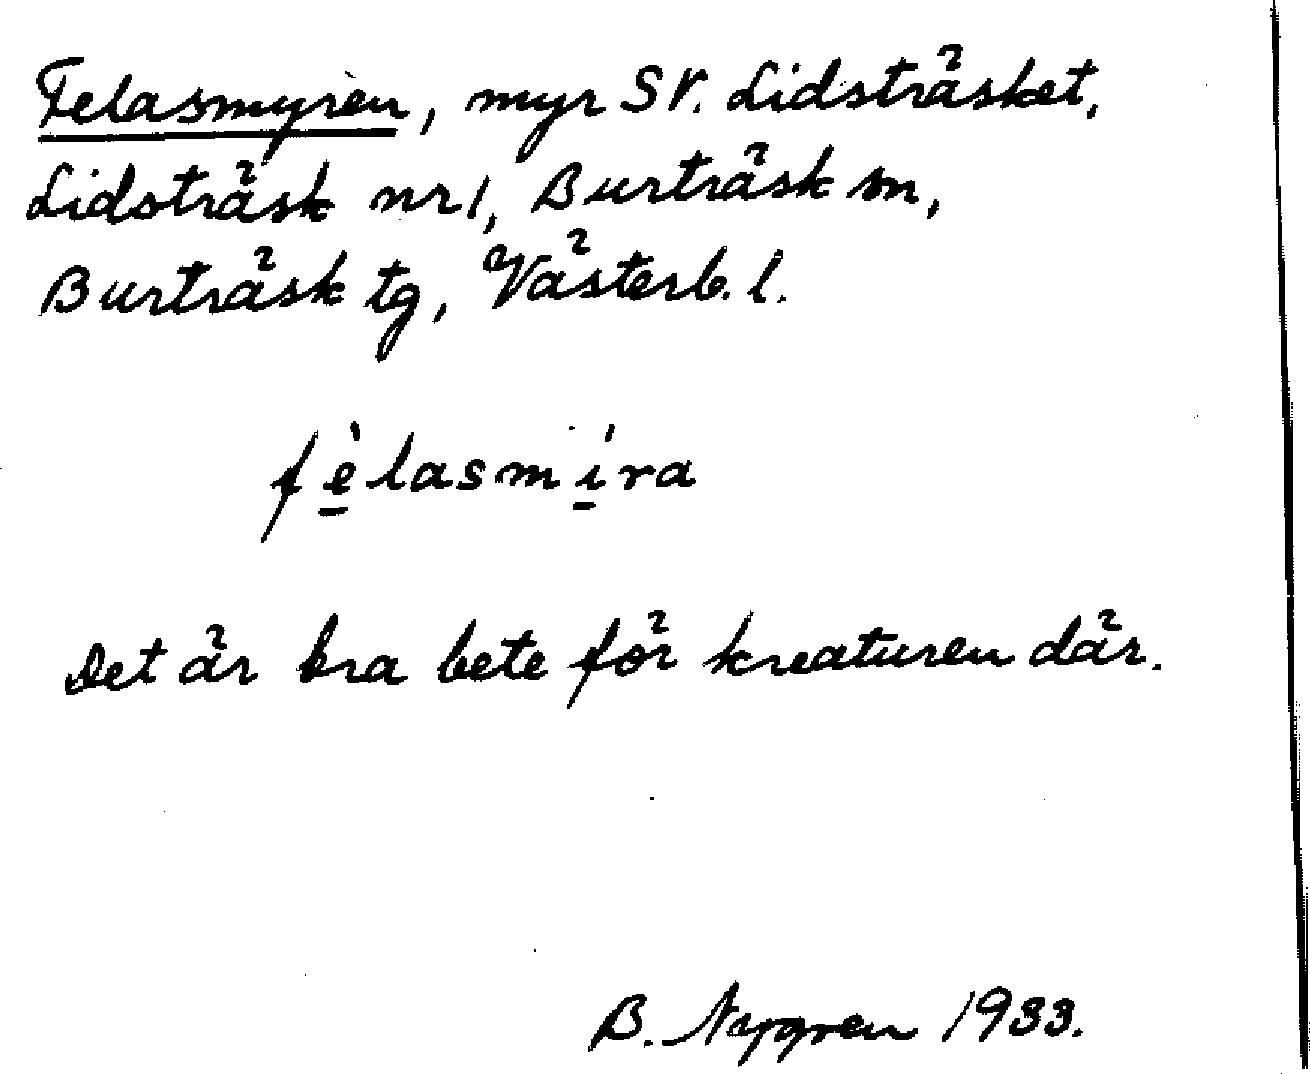 Felasmyren, myr SV. Lidsträsket,
Lidsträsk nr 1, Burträsk sn,
Burträsk tg, Västerb. l.
fèlasmíra
Det är bra bete för kreaturen där.
B. Nygren 1933.